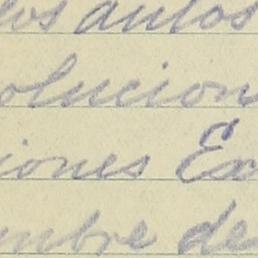 los autos
olucion
iones Ex
mbre de